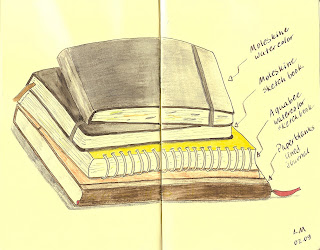 Moleskine
watercolor
Moleskine
sketch book
Aquabee
watercolor
sketchbook
Paperthinks
lined
journal
1.M
02.09